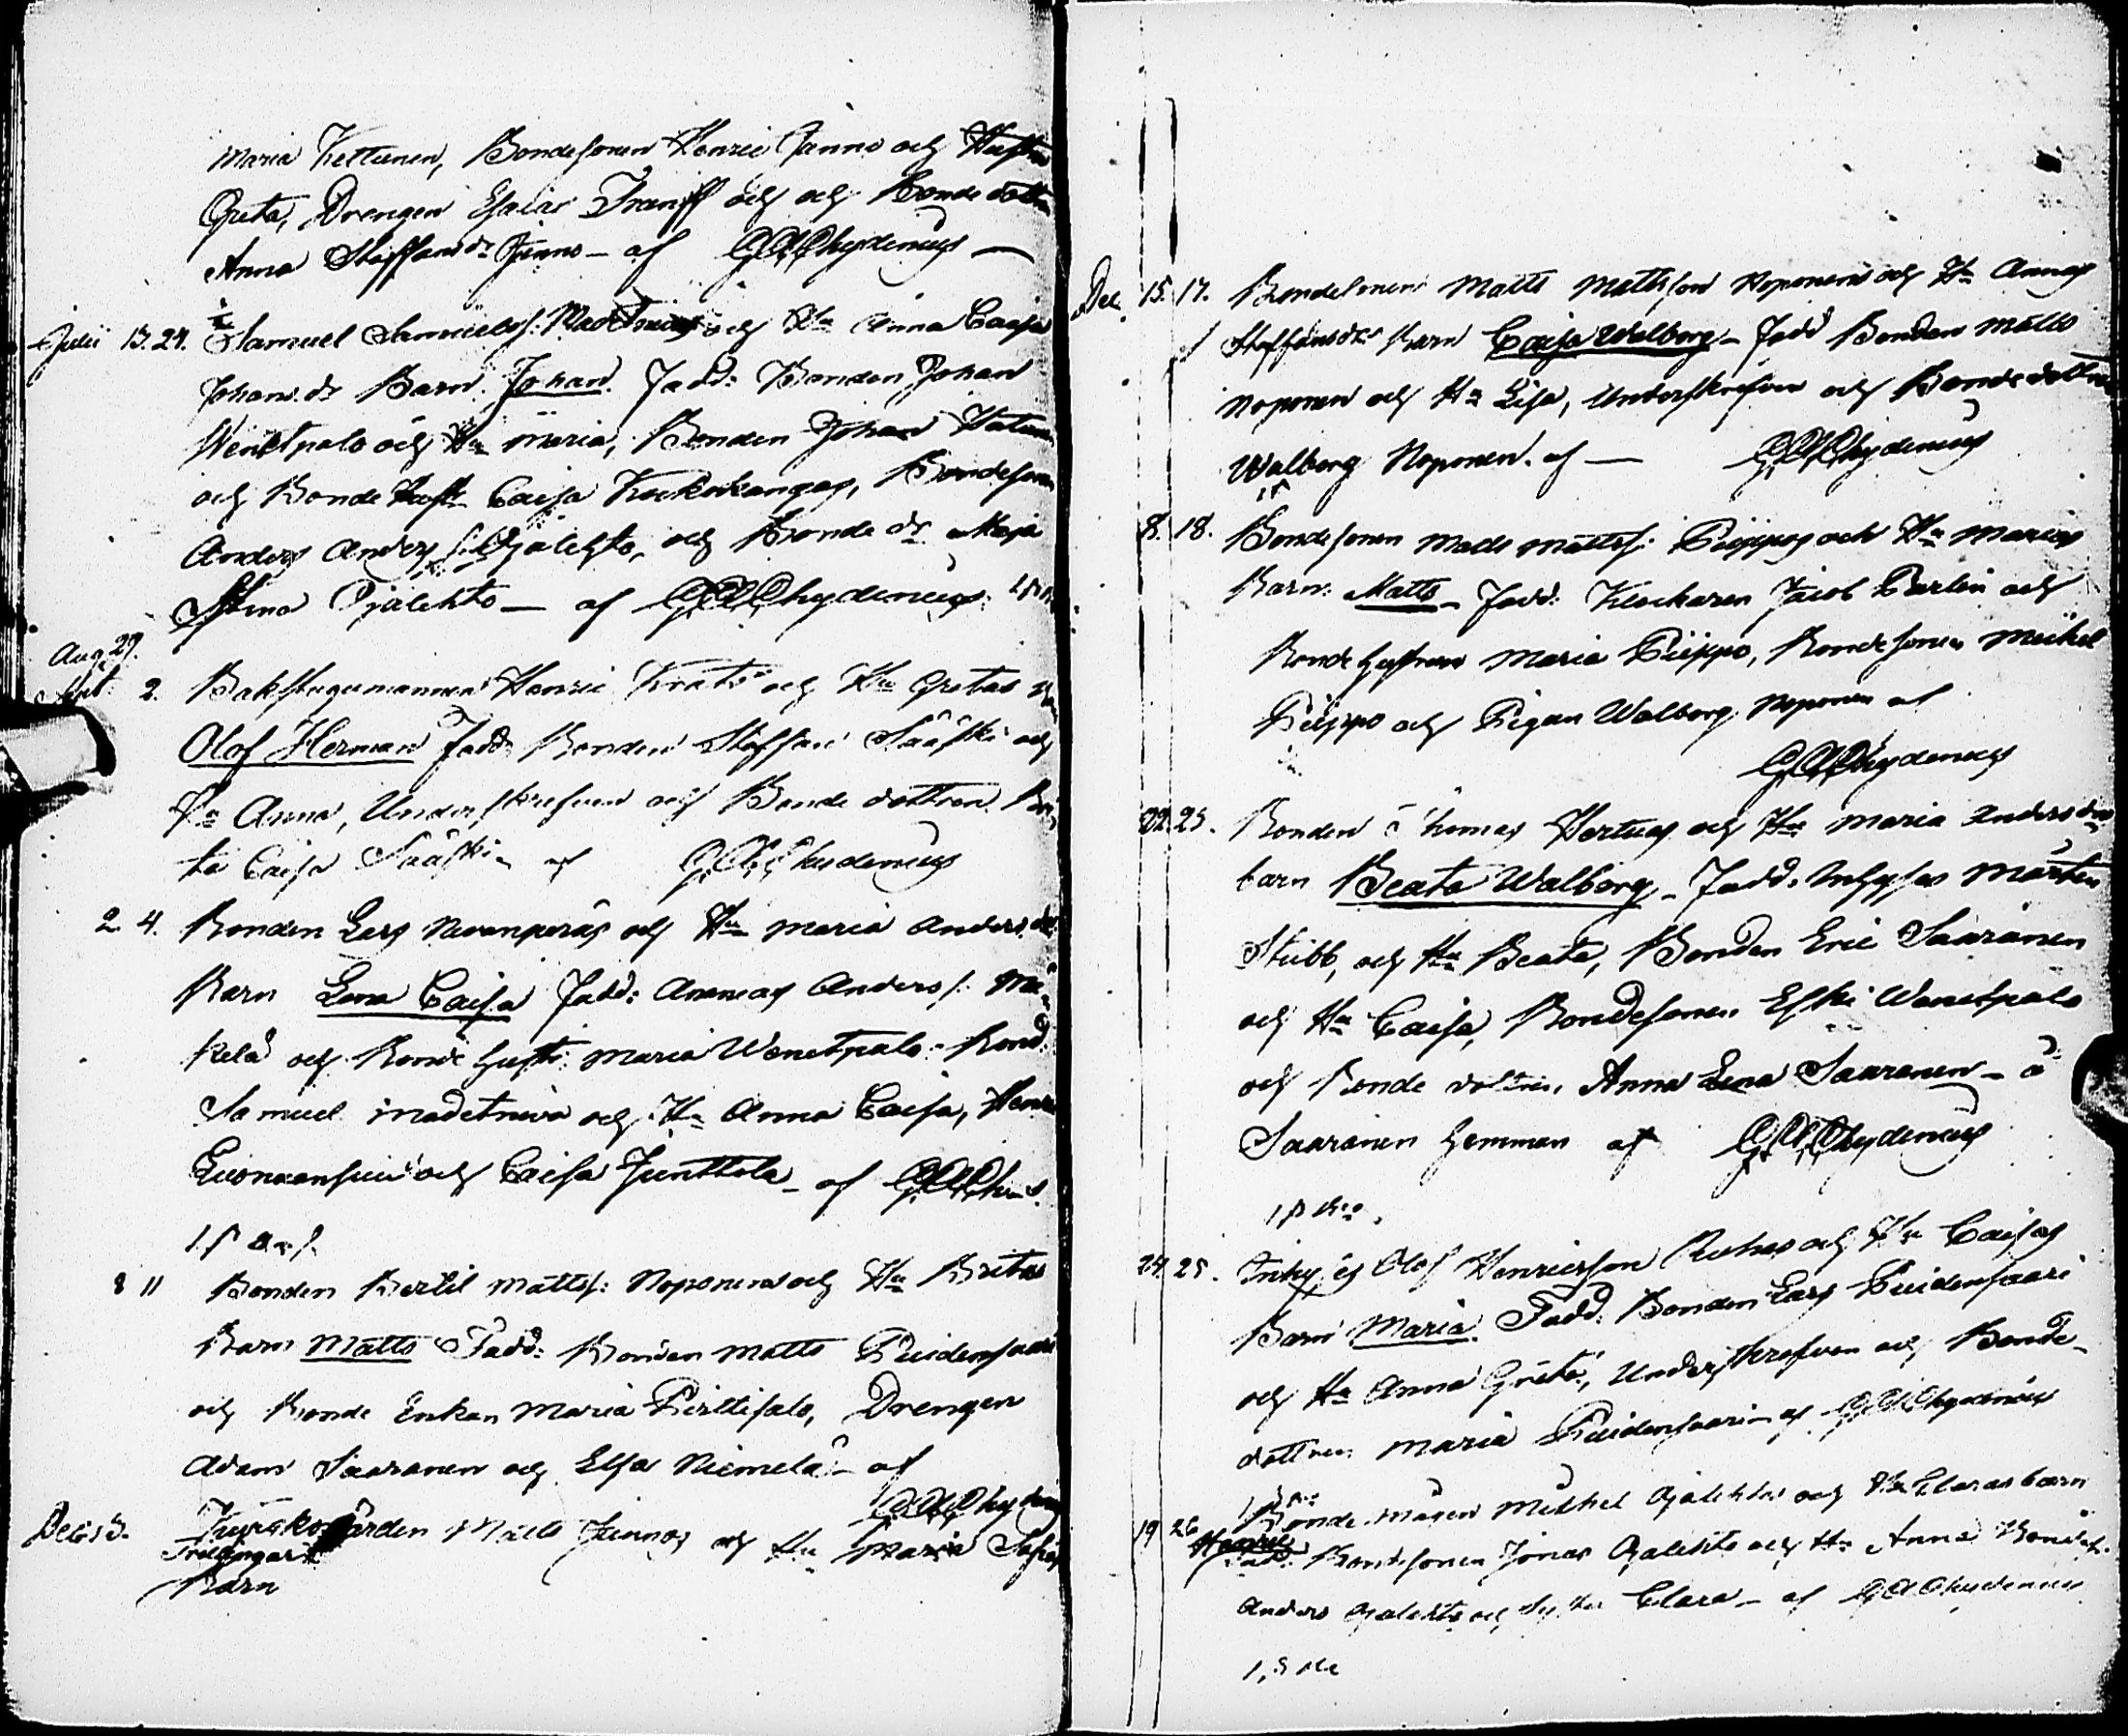 Maria Kettunen, Bondesonen Henric Junno och Hustru
Greta, Drengen Esaias Tranff och och Bonde dottr
Anna Staffans dr Junno – af G A Chydenius —
Julii 13. 24. Samuel Samuels s: Madetnivas och Hu Anna Caisa
Johans dr Barn. Johan. Fadd: Bonden Johan
Wenetpalo och Hu Maria, Bonden Johan
och Bonde Hust Caisa Kuckokangas, Bondesonen
Anders Anders s. Ojalehto, och Bonde dr Maja
Stina Ojalehto — af G A Chydenius.
Aug 29.
Sept. 2. Bakstugumannen Henric Krats och Hu Gretas
Olof Herman Fadd: Bonden Staffan Sääski och
Hu Anna, Underskrefven och Bonde dottren Bri-
ta Caisa Sääski – af G A Chydenius
2. 4. Bonden Lars Navanperäs och Hu Maria Anders dr
Barn Lena Caisa Fadd: Andreas Anders s. Mä-
kelä och Bonde Hustr: Maria Wenetpalo. Bond:
Samuel Madetniva och Hu Anna Caisa, Henric
och Caisa Junttola – af G A Chyd.
8 11 Bonden Bertil Matts s: Noponens och Hu Britas
Barn Matts Fadd: Bonden Matts Puidensaari
och Bonde Enkan Maria Pirttisalo, Drengen
Adam Saaranen och Elsa Niemelä – af
G A Chydenius
Dec: 13. Matts Junnos och Hu Maria Sofias
Barn
Dec. 15. 17. Bondesonens Matts Mattsson Noponens och Hu Annas
Staffansdrs Barn Caisa Walborg – Fadd Bonden Matts
Noponen och Hu Lisa, Underskrefven och Bondedottren
Walborg Noponen. af — G A Chydenius
8. 18. Bondesonen Mats Matts s: Piippos och Hu Marias
Barn: Matts – Fadd: Klockaren Jacob Perlin och
Bonde Hustrun Maria Piippo, Bondesonen Mickel
Piippo och Pigan Walborg Noponen af
G A Chydenius
22. 25. Bonden Thomas Pertus och Hu Maria Andersdrs
barn Beata Walborg – Fadd. Inhyses Mårten
Stubb, och Hu Beata, Bonden Eric Saaranen
och Hu Caisa, Bondesonen Eski Wenetpalo
och Bonde dottren Anna Lena Saaranen – å
Saaranen hemman af G A Chydenius
24. 25. Inhyses Olof Henricsson och Hu Caisas
Barn Maria. Fadd. Bonden Lars Puidensaari
och Hu Anna Greta, Underskrefven och Bonde-
dottren Maria Puidensaari – af G A Chydenius
19 26 Bonde mågen Michel Ojalehtos och Hu Claras barn
Fadd: Bondesonen Jonas Ojalehto och Hu Anna Bondes.
Anders Ojalehto och Clara – af G A Chydenius